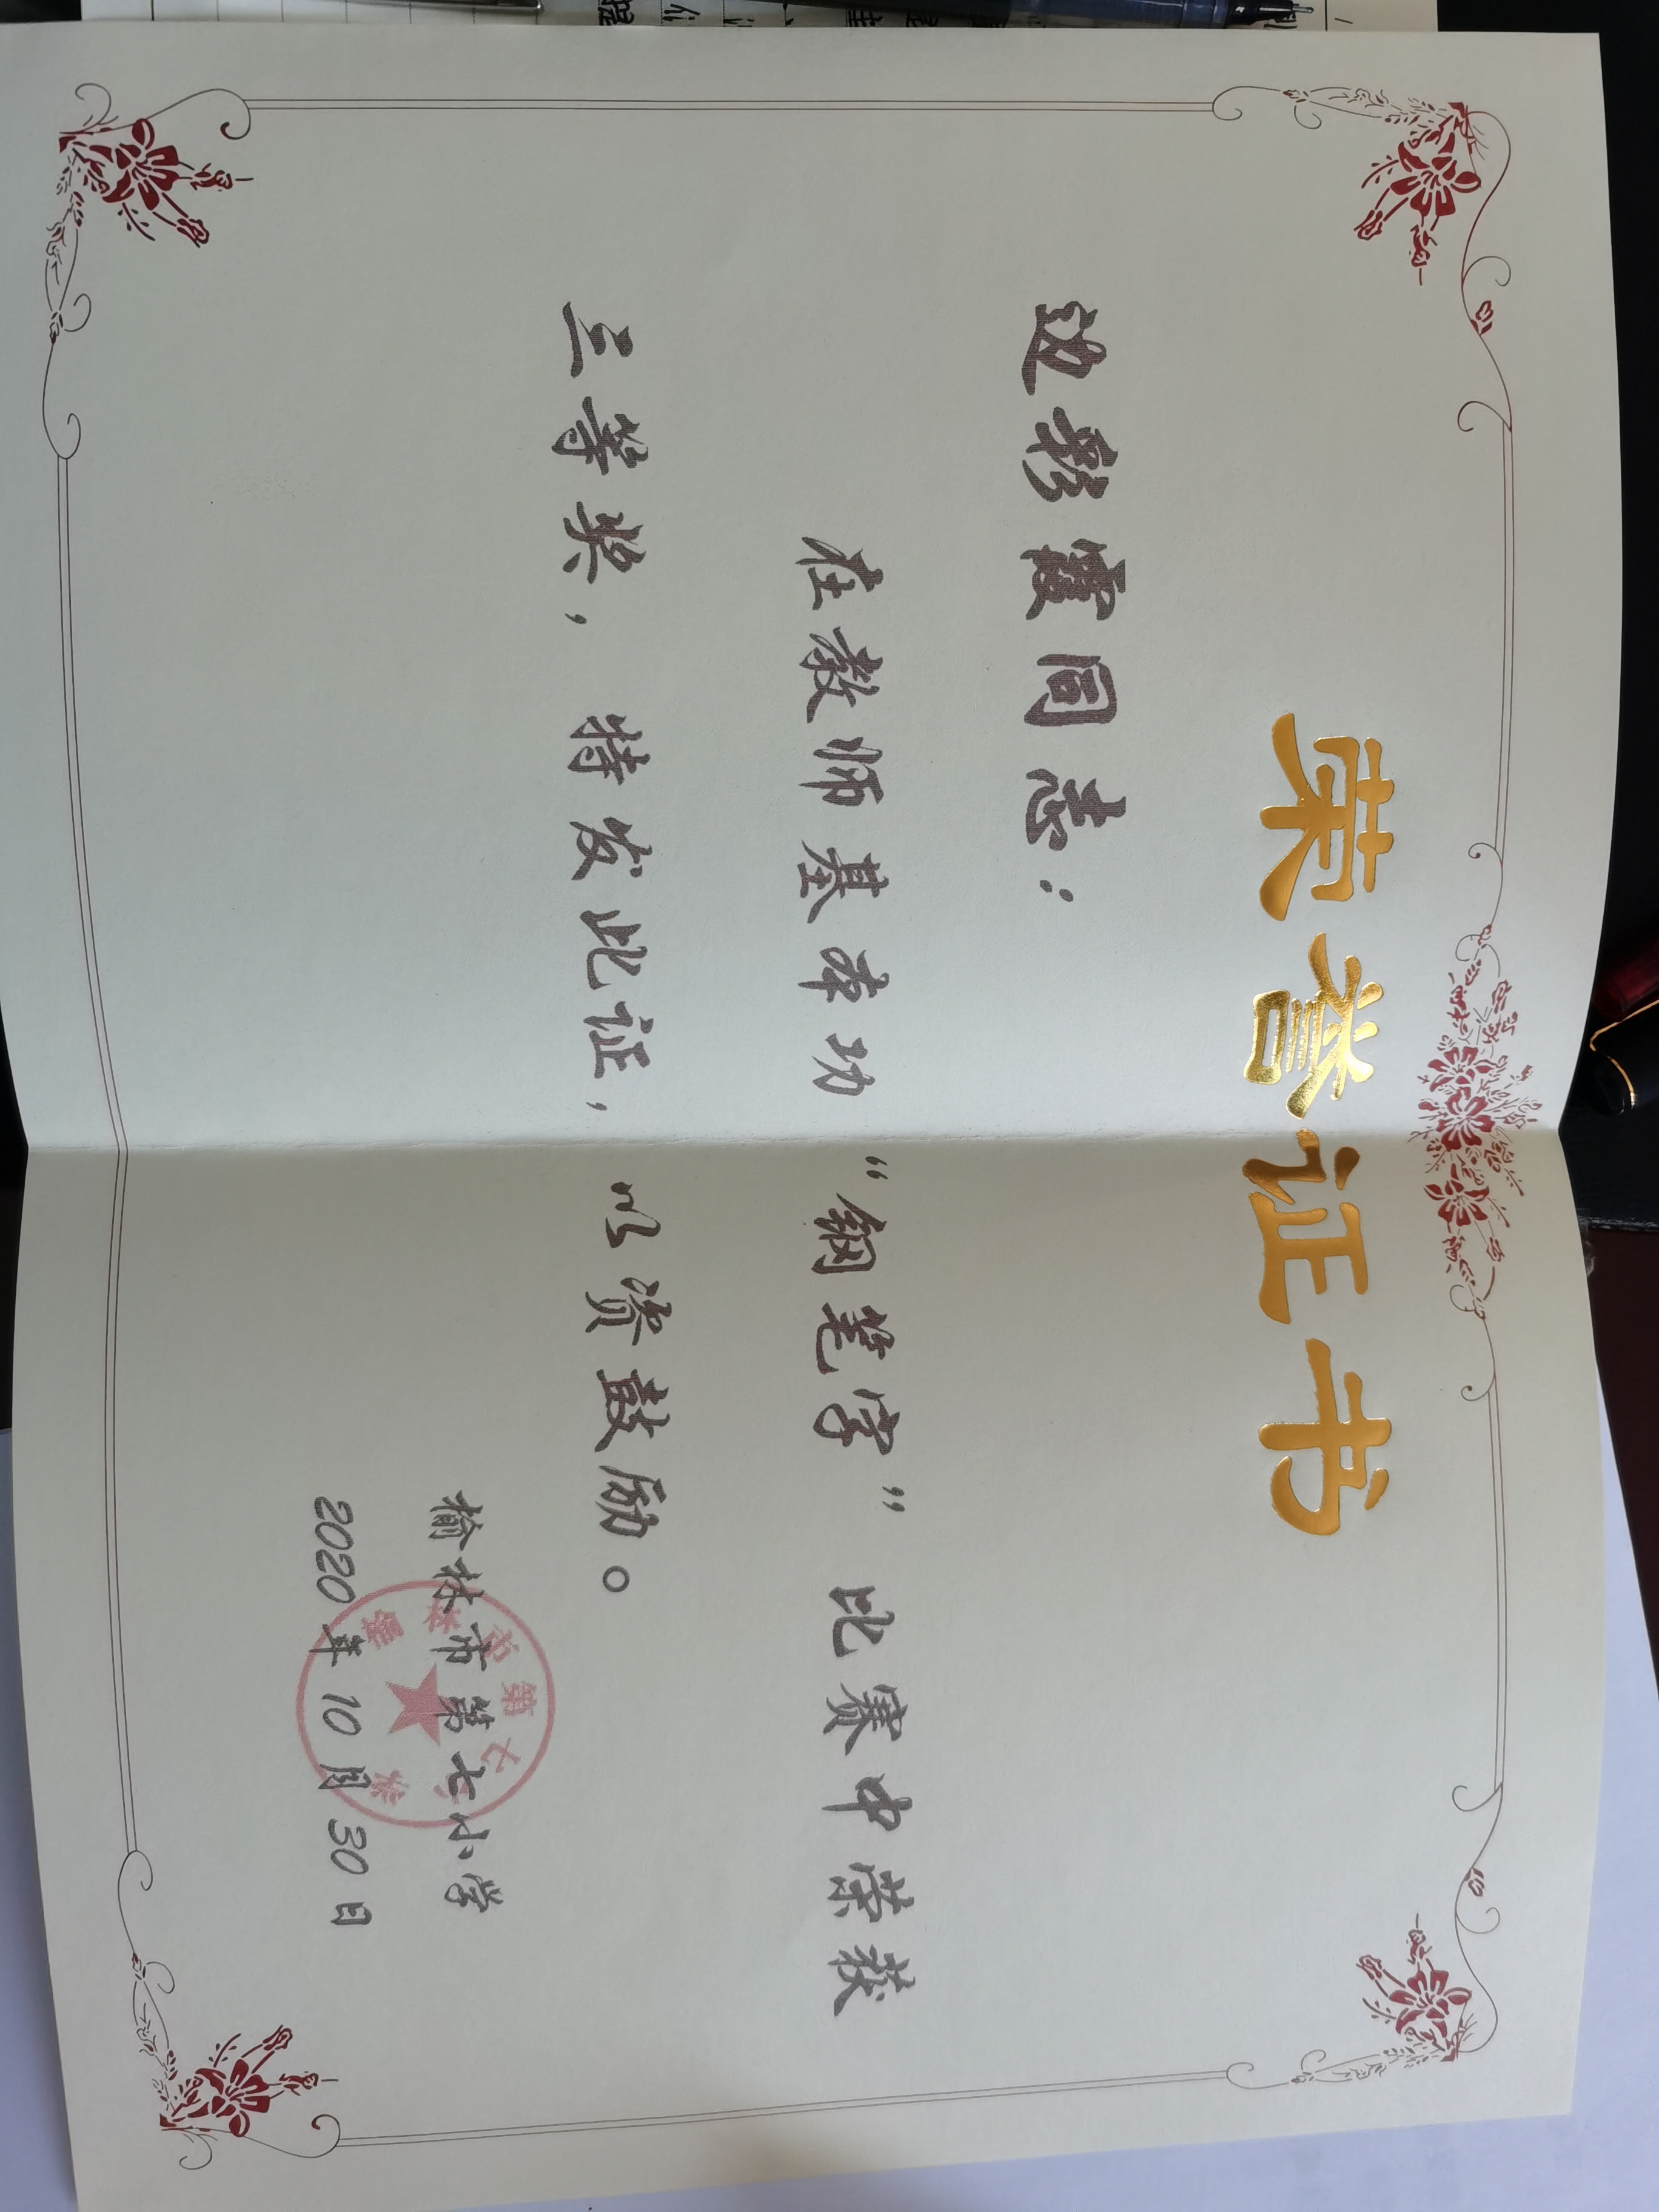 荣誉证书
边彩霞同志：
在教师基本功“钢笔字”比赛中荣获
三等奖，特发此证，以资鼓励。
榆林市第七小学
2020年10月30日